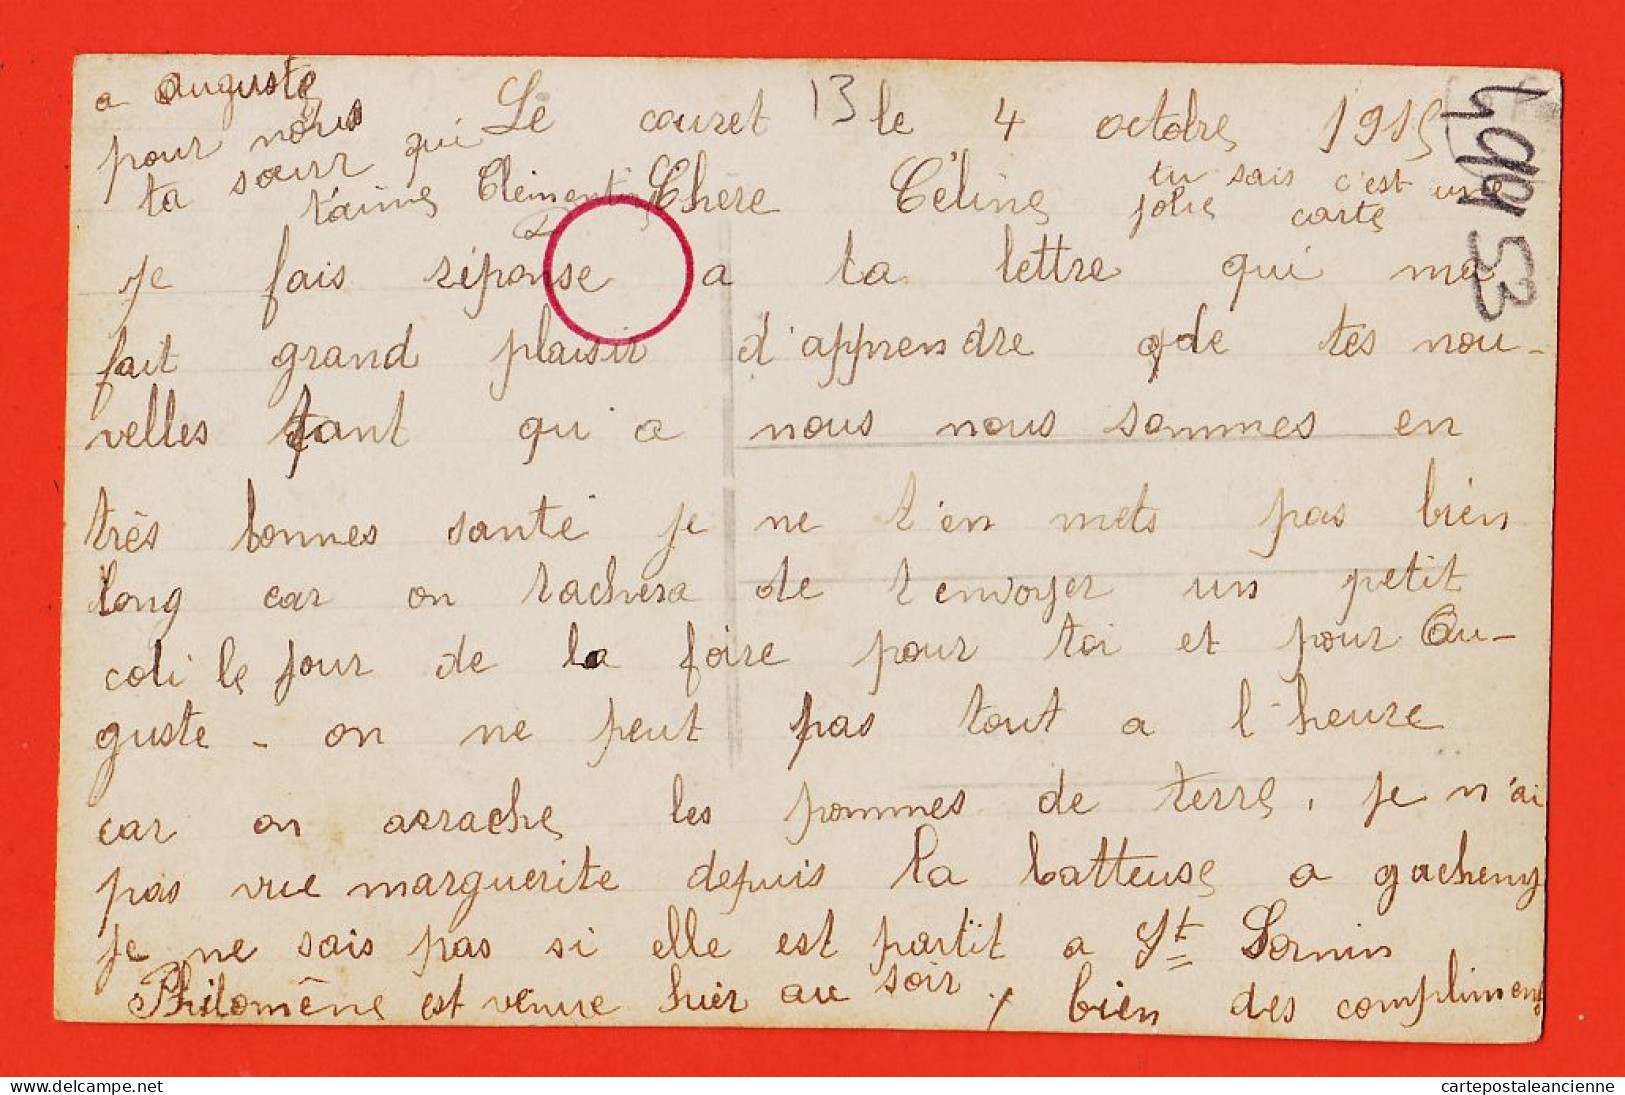 Le couret le 4 octobre 1915
13
Chère Céline
tu sais c'est une
jolie carte
je fais réponse a ta lettre qui ma
fait grand plaisir d'apprendre de tes nou-
velles tant qu'a nous nous sommes en
très bonnes santé je ne t'en mets pas bien
long car on tachera de t'envoyer un petit
coli le jour de la foire pour toi et pour Au-
guste - on ne peut pas tout a l'heure
car on arrache les pommes de terre, je n'ai
pas vue marguerite depuis la batteuse a gacheny
je ne sais pas si elle est partit a St Sornin
Philomène est venue hier au soir
bien des compliment
a Auguste
pour nous
ta sœur qui
t'aime Clementine
53
cartepostaleancienne